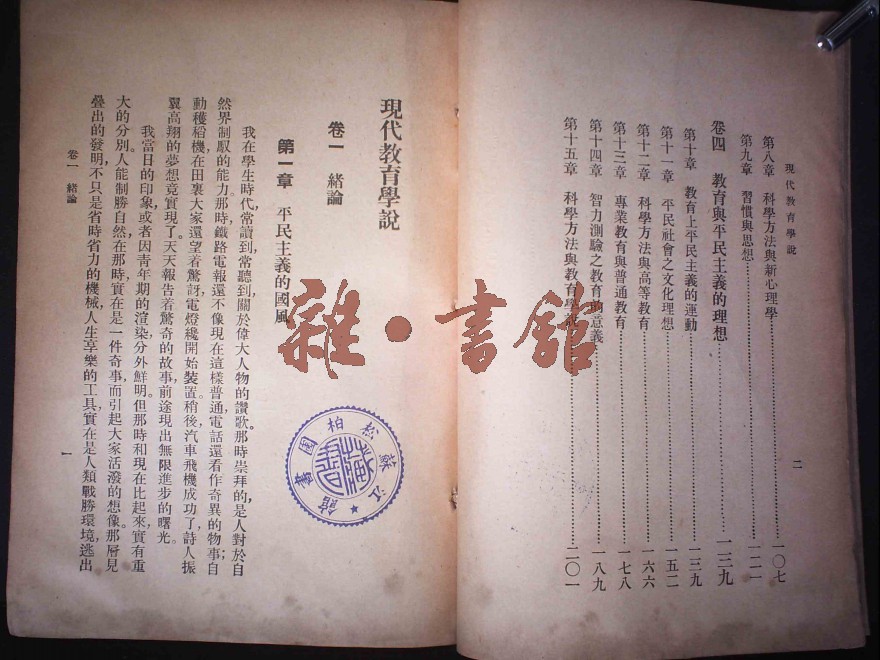 現代教育學說
第八章 科學方法與新心理學 一〇七
第九章 習慣與思想 一二一
卷四 教育與平民主義的理想 一三九
第十章 教育上平民主義的運動 一三九
第十一章 平民社會之文化理想 一五二
第十二章 科學方法與高等教育 一六六
第十三章 專業教育與普通教育 一七八
第十四章 智力測驗之教育的意義 一八九
第十五章 科學方法與教育學說 二〇一
二
現代教育學說
卷一 緒論
第一章 平民主義的國風
我在學生時代,常讀到常聽到關於偉大人物的讚歌。那時崇拜的是人對於自
然界制馭的能力。那時,鐵路電報還不像現在這樣普通,電話還看作奇異的物事;自
動穫稻機在田裏大家還望着驚訝,電燈纔開始裝置。稍後,汽車飛機成功了,詩人振
翼高翔的夢想竟實現了。天天報告着驚奇的故事,前途現出無限進步的曙光。
我當日的印象,或者因青年期的渲染分外鮮明。但那時和現在比起來,實有重
大的分別。人能制勝自然,在那時實在是一件奇事,而引起大家活潑的想像。那層見
疊出的發明,不只是省時省力的機械,人生享樂的工具,實在是人類戰勝環境,逃出
卷一 緒論
一
雜·書館
江蘇松柏圖書館